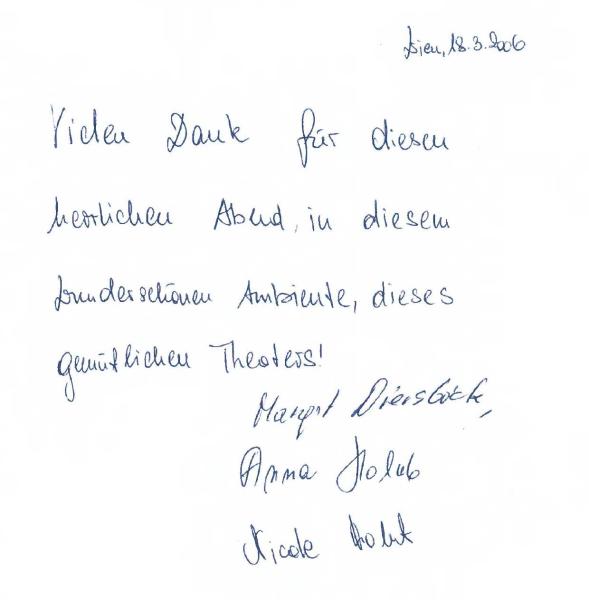 Wien, 18.3.2006
Vielen Dank für diesen
herrlichen Abend, in diesem
wunderschönen Ambiente, dieses
gemütlichen Theaters!
Margit
Anna Holub
Nicole